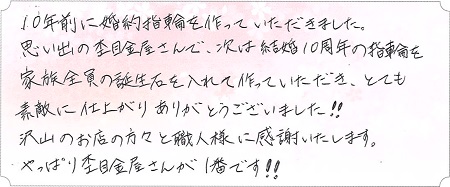 10年前に婚約指輪を作っていただきました。
思い出の杢目金屋さんで、次は結婚10周年の指輪を
家族全員の誕生石を入れて作っていただき、とても
素敵に仕上がりありがとうございました!!
沢山のお店の方々と職人様に感謝いたします。
やっぱり杢目金屋さんが1番です!!